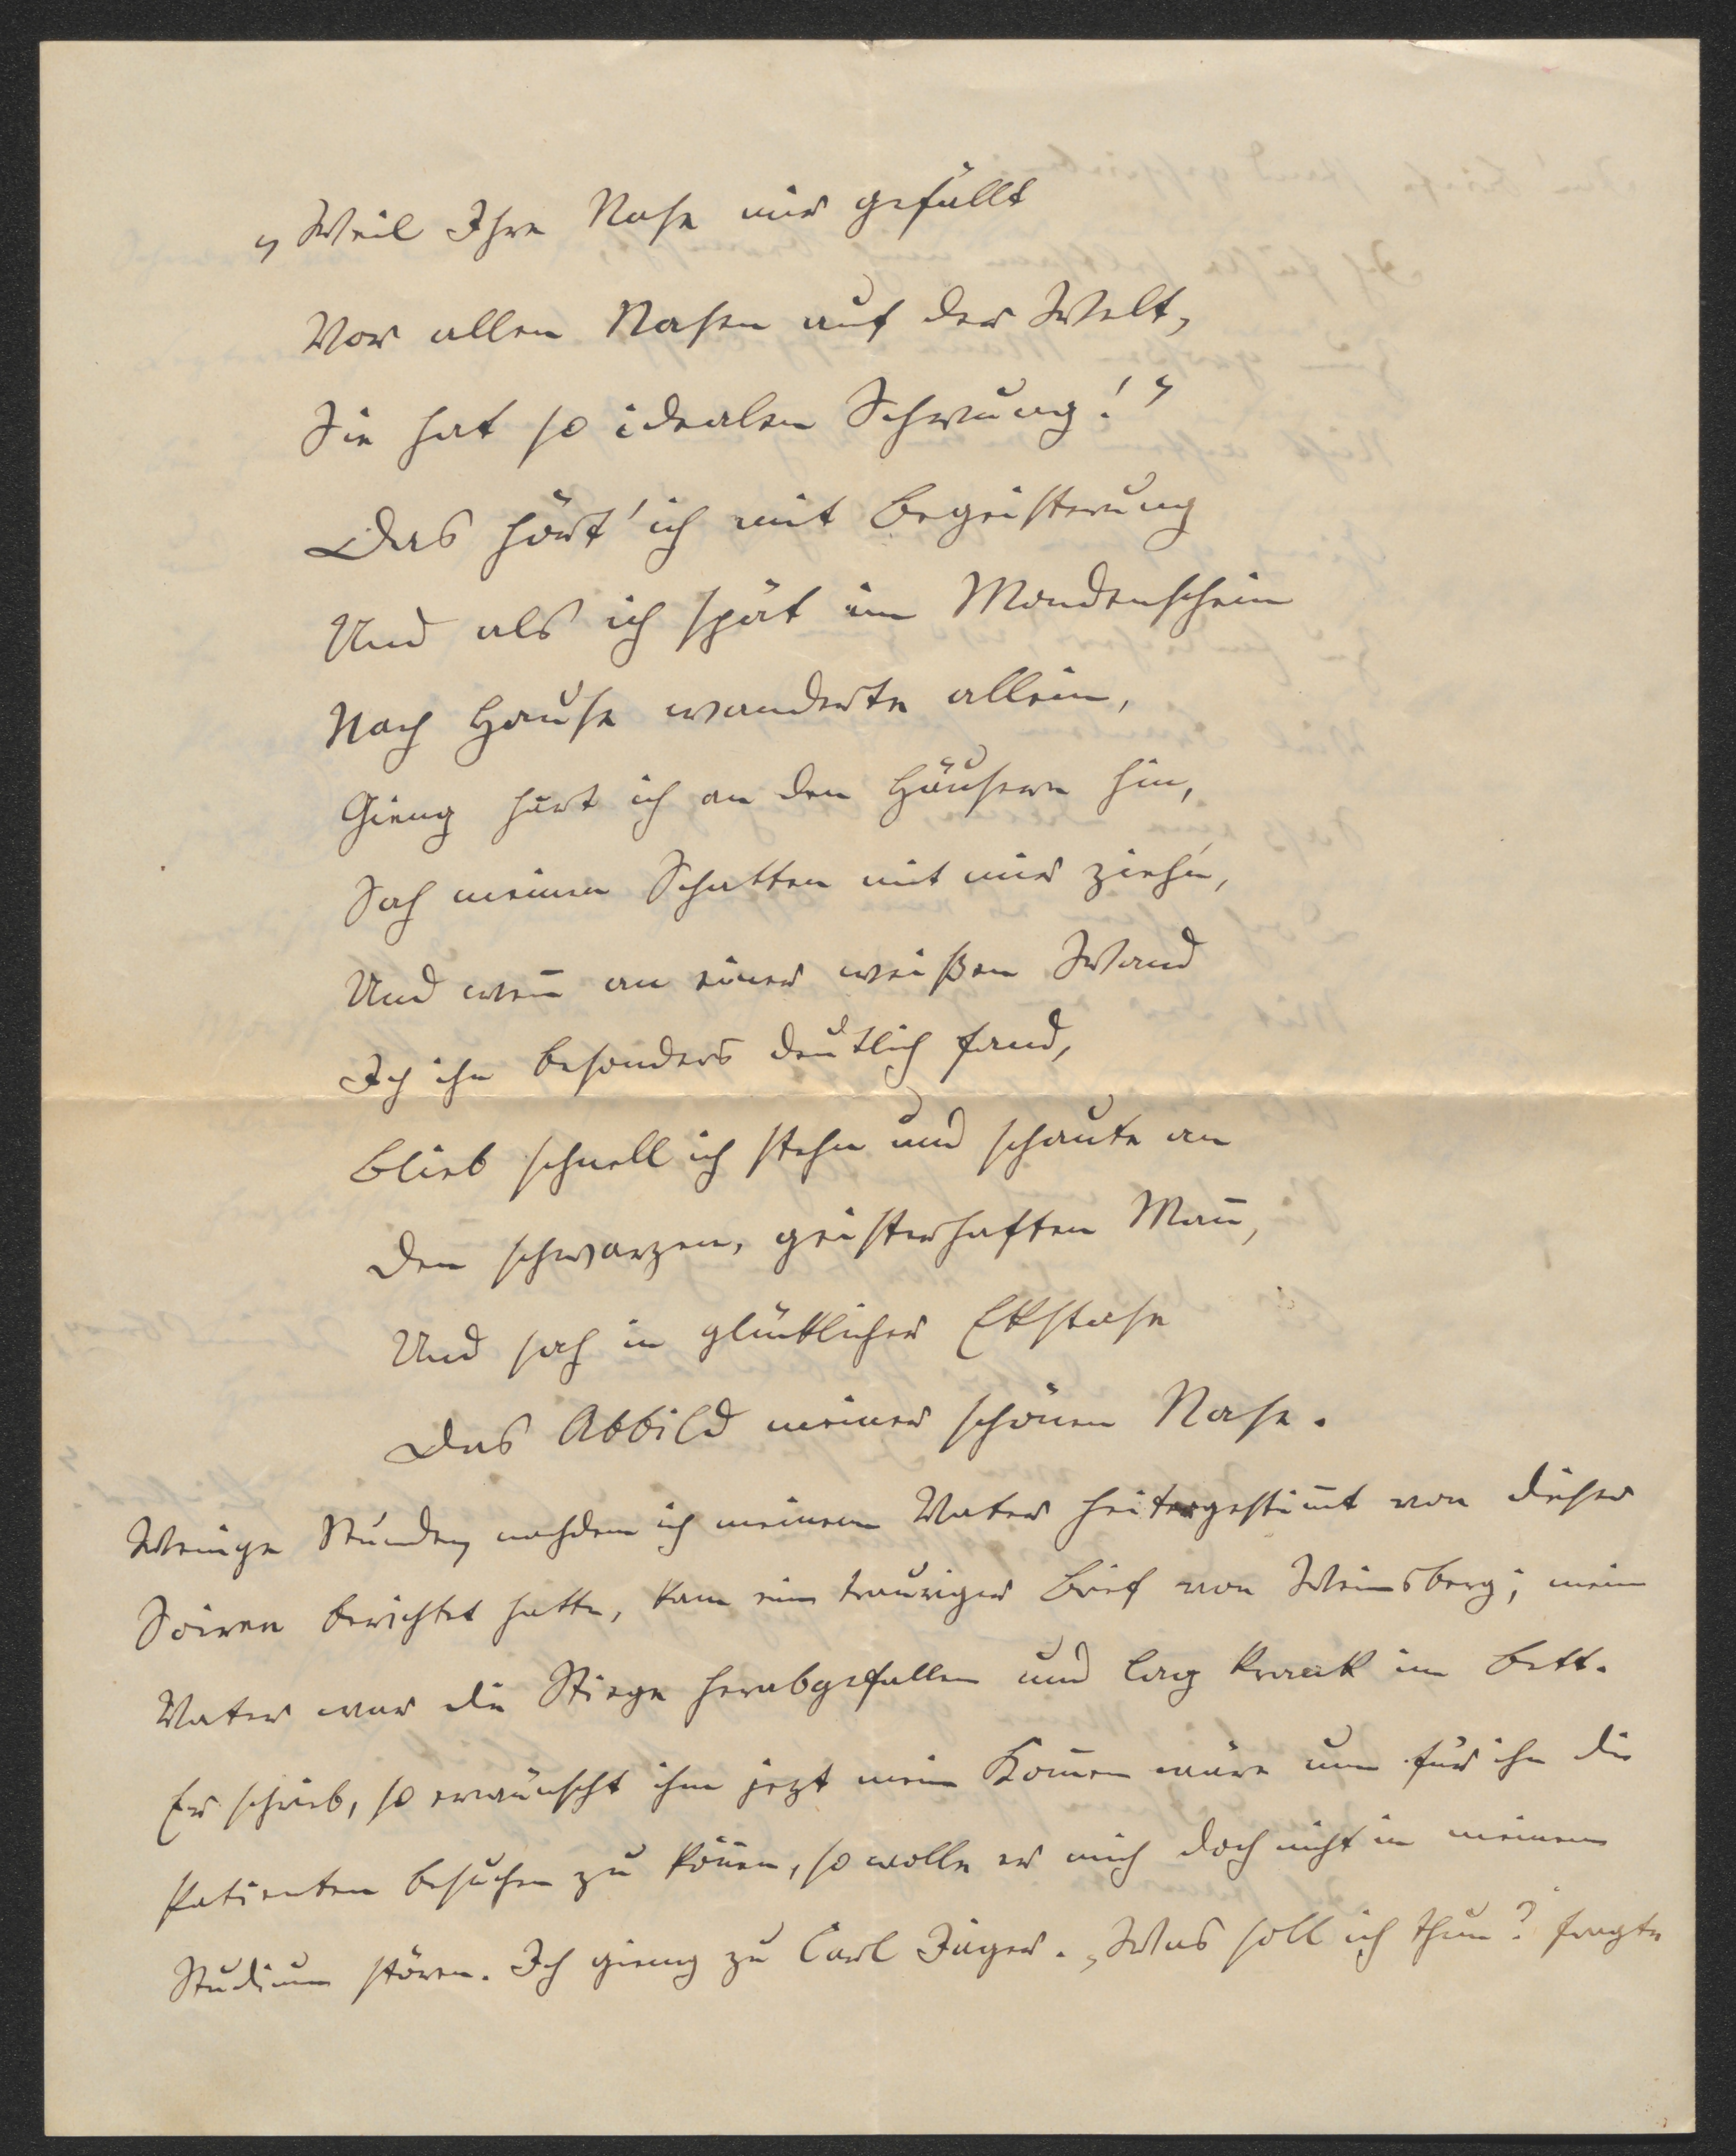 „Weil Ihre Nase mir gefällt
Vor allen Nasen auf der Welt,
Sie hat so idealen Schwung!“
Das hört' ich mit Begeisterung
Und als ich spät im Mondenschein
Nach Hause wanderte allein,
Gieng hart ich an den Häusern hin,
Sah meinen Schatten mit mir ziehn,
Und weñ an einer weißen Wand
Ich ihn besonders deutlich fand,
Blieb schnell ich stehn und schaute an
Den schwarzen, geisterhaften Mañ,
Und sah in glücklicher Ekstase
Das Abbild meiner schönen Nase.
Wenige Stunden, nachdem ich meinem Vater heitergestim̄t von dieser
Soiree berichtet hatte, kam ein trauriger Brief von Weinsberg; mein
Vater war die Stiege herabgefallen und lag krank im Bett.
Er schrieb, so erwünscht ihm jezt mein Kom̄en wäre um für ihn die
Patienten besuchen zu köñen, so wolle er mich doch nicht in meinem
Studium stören. Ich gieng zu Carl Jäger. „Was soll ich thun? fragte